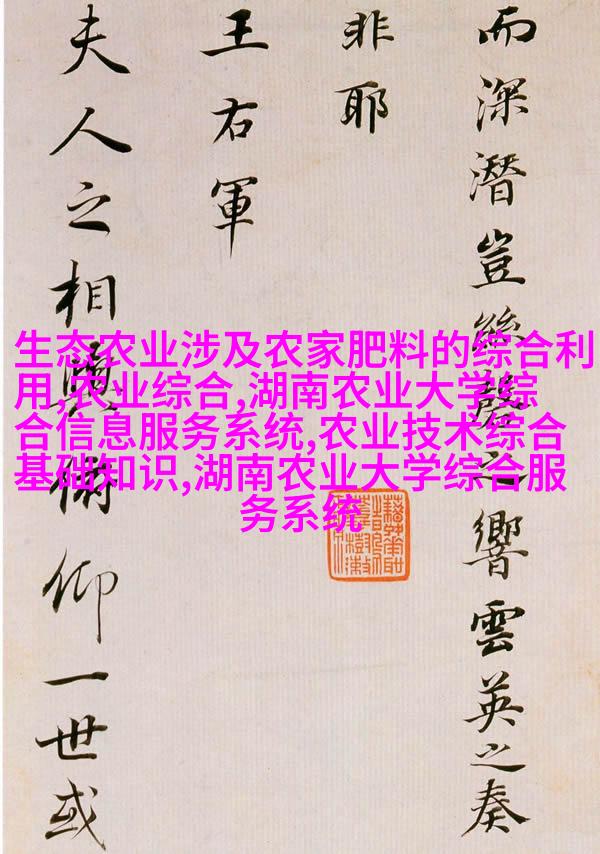 而深潛豈絲磬之響雲英之奏
非耶
王右軍
夫人之相與俯仰一世或
生态农业涉及农家肥料的综合利
用,农业综合,湖南农业大学综
合信息服务系统,农业技术综合
基础知识,湖南农业大学综合服
务系统